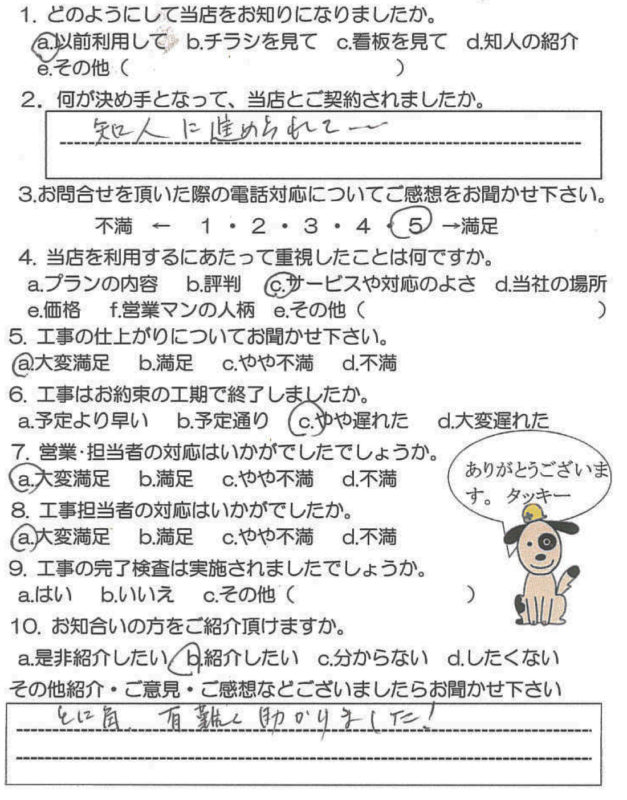 1. どのようにして当店をお知りになりましたか。
a.以前利用して b.チラシを見て c.看板を見て d.知人の紹介
e.その他（ ）
2. 何が決め手となって、当店とご契約されましたか。
知人に進められて〜
3.お問合せを頂いた際の電話対応についてご感想をお聞かせ下さい。
不満 ← 1・2・3・4・5 →満足
4. 当店を利用するにあたって重視したことは何ですか。
a.プランの内容 b.評判 c.サービスや対応のよさ d.当社の場所
e.価格 f.営業マンの人柄 e.その他（ ）
5. 工事の仕上がりについてお聞かせ下さい。
a.大変満足 b.満足 c.やや不満 d.不満
6. 工事はお約束の工期で終了しましたか。
a.予定より早い b.予定通り c.やや遅れた d.大変遅れた
7. 営業・担当者の対応はいかがでしたでしょうか。
a.大変満足 b.満足 c.やや不満 d.不満
ありがとうございま
す。 タッキー
8. 工事担当者の対応はいかがでしたか。
a.大変満足 b.満足 c.やや不満 d.不満
9. 工事の完了検査は実施されましたでしょうか。
a.はい b.いいえ c.その他（ ）
10. お知合いの方をご紹介頂けますか。
a.是非紹介したい b.紹介したい c.分からない d.したくない
その他紹介・ご意見・ご感想などございましたらお聞かせ下さい
とに角、有難く助かりました!